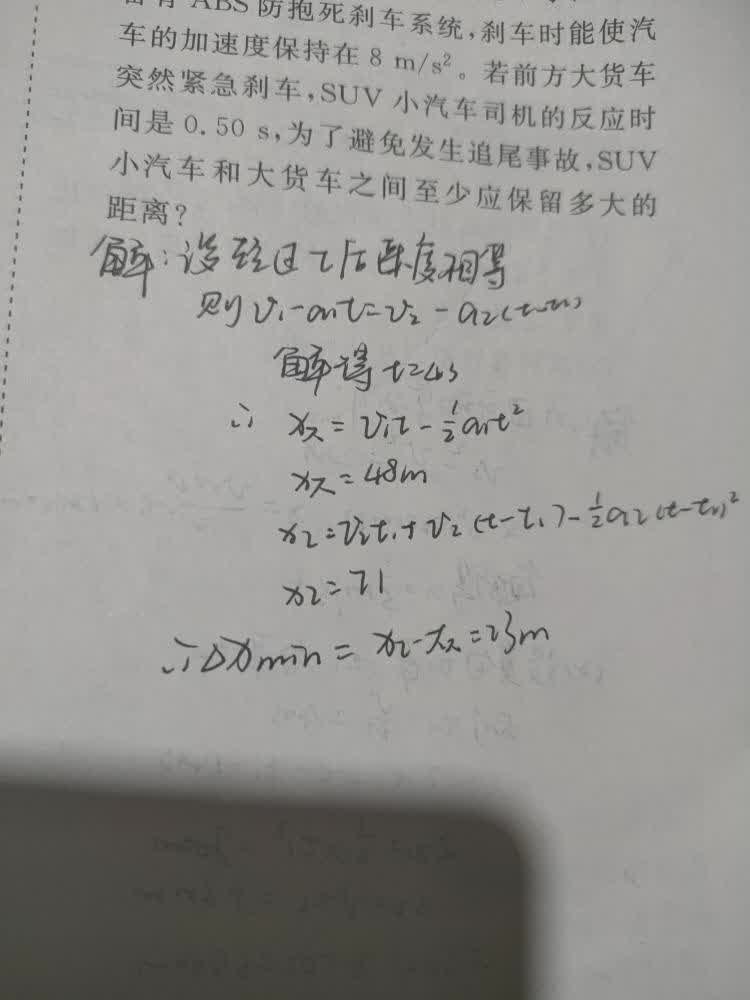 备有 ABS 防抱死刹车系统,刹车时能使汽
车的加速度保持在 8 m/s²。若前方大货车
突然紧急刹车,SUV 小汽车司机的反应时
间是 0.50 s,为了避免发生追尾事故,SUV
小汽车和大货车之间至少应保留多大的
距离?
解:设经过t后速度相等
则 v₁-a₁t=v₂-a₂(t-t₁)
解得 t=4s
∴ x大=v₁t-½a₁t²
x大=48m
x2=v₂t₁+v₂(t-t₁)-½a₂(t-t₁)²
x2=71
∴Δxmin=x2-x大=23m